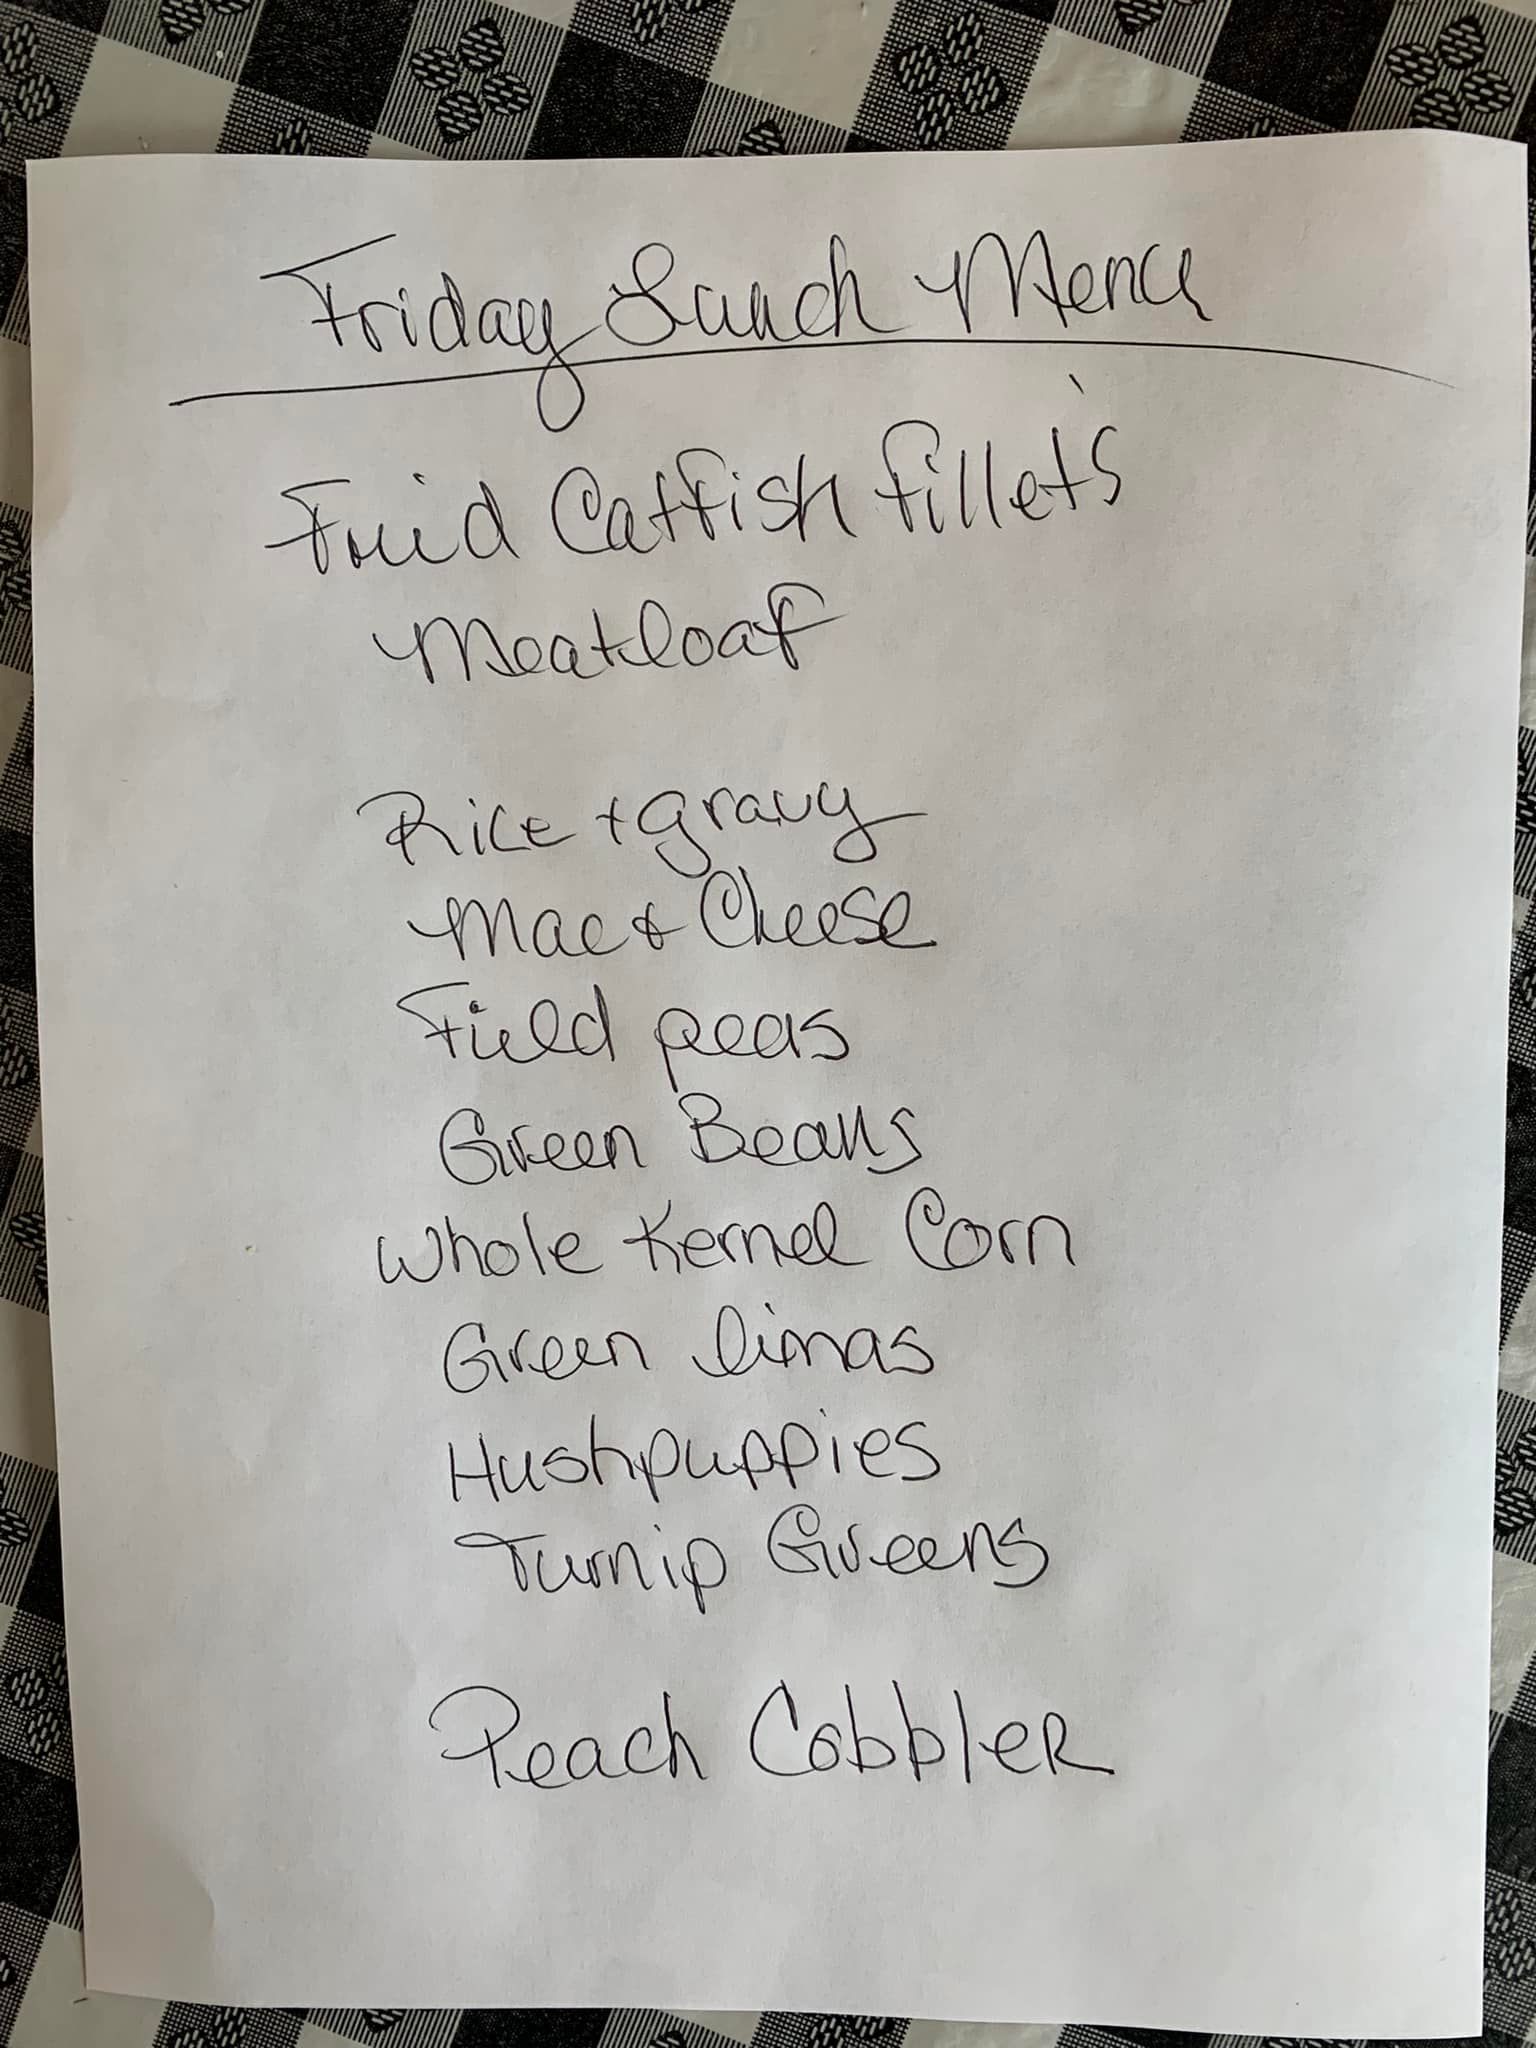 Friday Lunch Menu
Fried Catfish fillet's
Meatloaf
Rice + gravy
Mac & Cheese
Field peas
Green Beans
Whole Kernel Corn
Green limas
Hushpuppies
Turnip Greens
Peach Cobbler